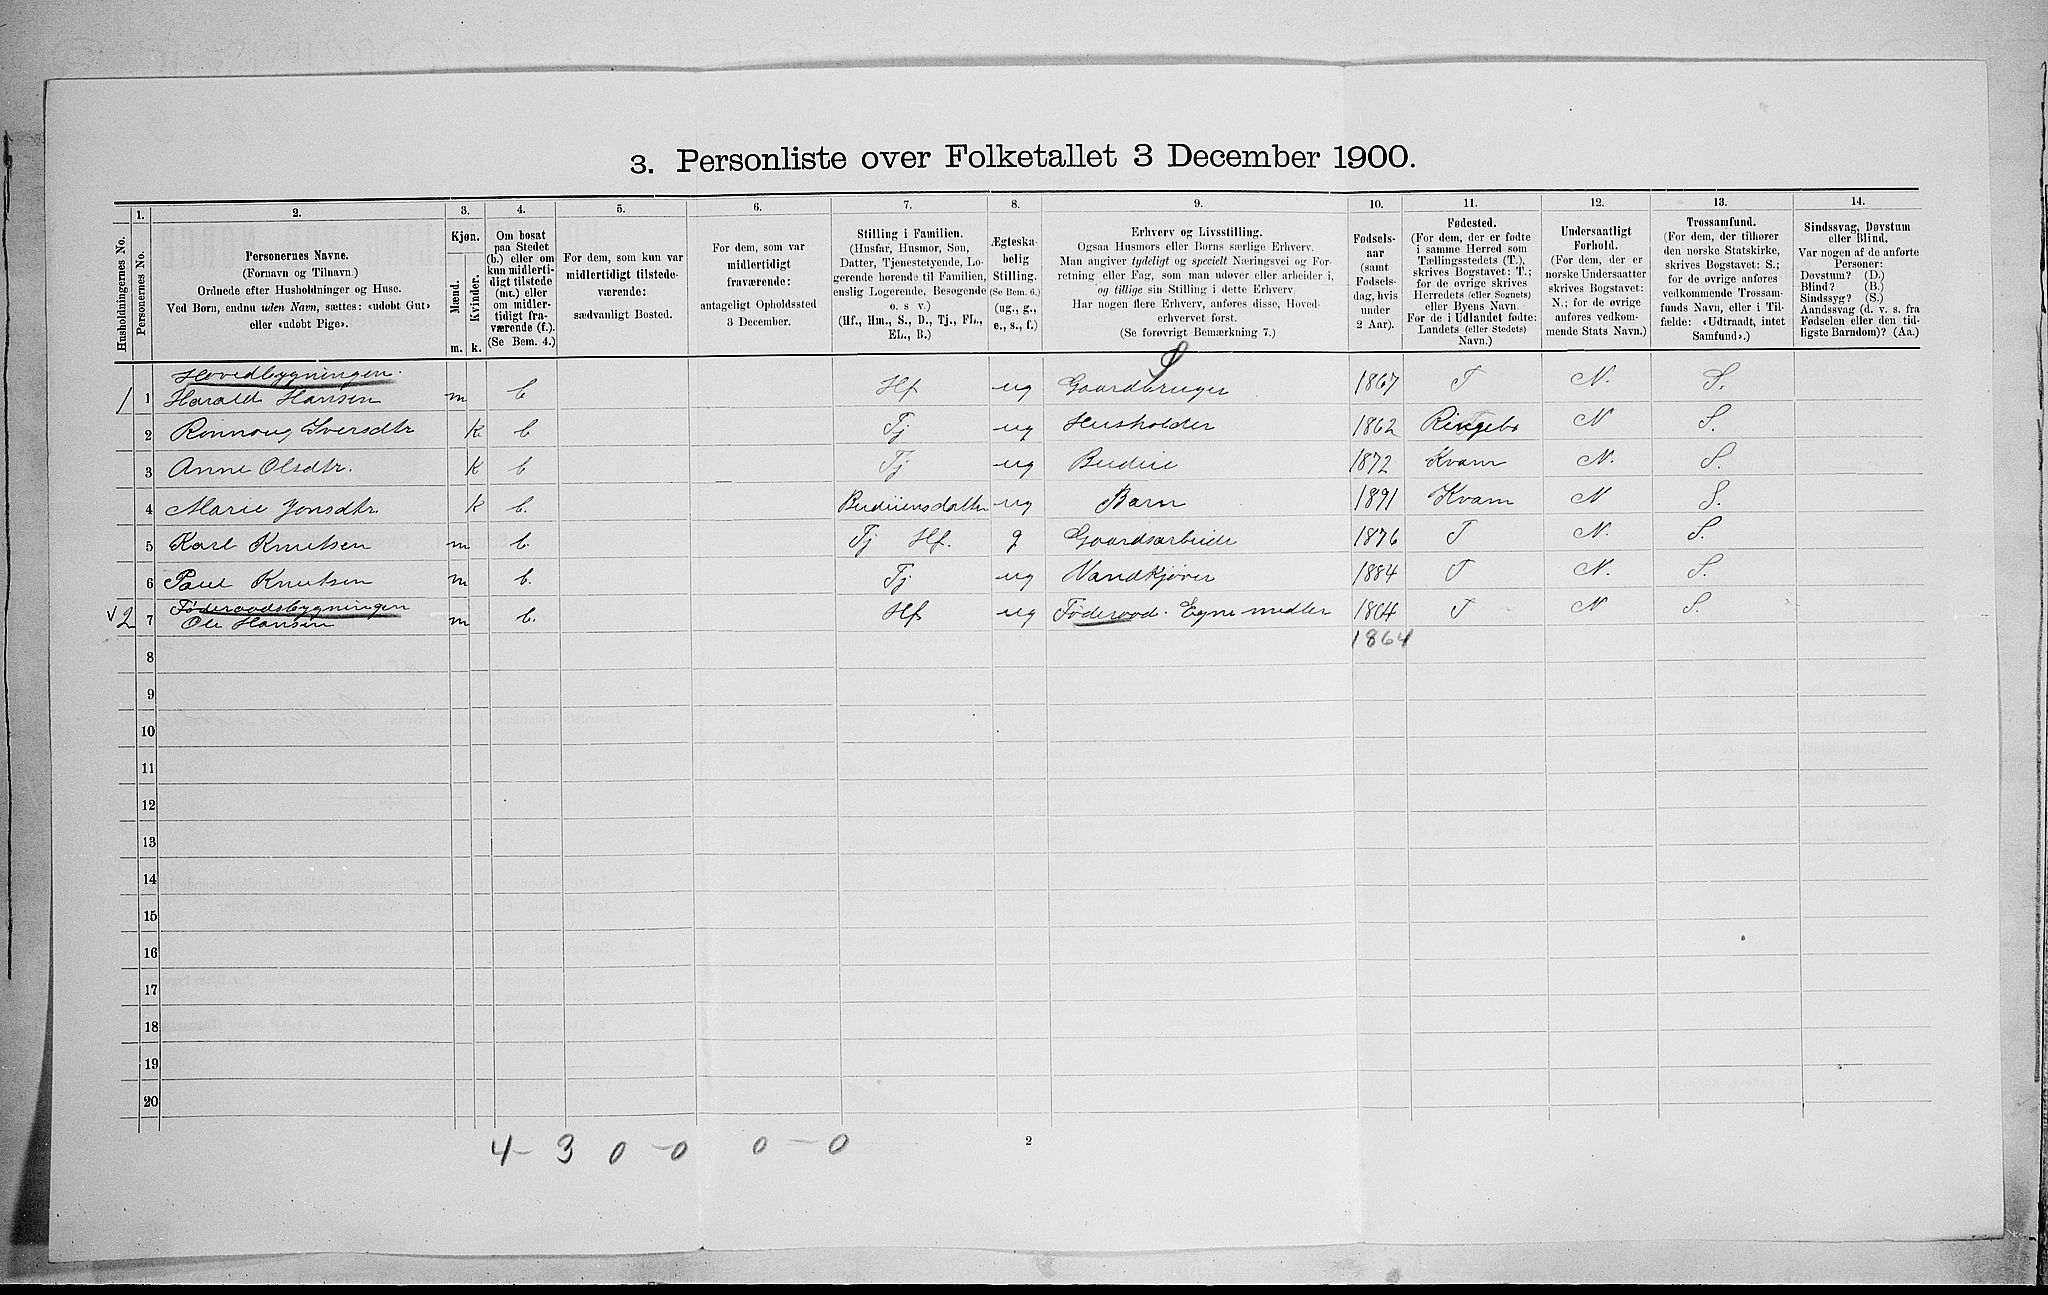 3. Personliste over Folketallet 3 December 1900.
1. 2. 3. 4. 5. 6. 7. 8. 9. 10. 11. 12. 13. 14.
Husholdningernes No.
Personernes No.
Personernes Navne.
(Fornavn og Tilnavn.)
Ordnede efter Husholdninger og Huse.
Ved Børn, endnu uden Navn, sættes: «udøbt Gut»
eller «udøbt Pige».
Kjøn.
Mænd.
Kvinder.
m. k.
Om bosat
paa Stedet
(b.) eller om
kun midlerti-
digt tilstede
(mt.) eller
om midler-
tidigt fra-
værende (f.).
(Se Bem. 4.)
For dem, som kun var
midlertidigt tilstede-
værende:
sædvanligt Bosted.
For dem, som var
midlertidigt
fraværende:
antageligt Opholdssted
3 December.
Stilling i Familien.
(Husfar, Husmor, Søn,
Datter, Tjenestetyende, Lo-
gerende hørende til Familien,
enslig Logerende, Besøgende
o. s v.)
(Hf., Hm., S., D., Tj., FL.,
EL., B.)
Ægteska-
belig
Stilling.
(Se Bem. 6.)
(ug., g.,
e., s., f.)
Erhverv og Livsstilling.
Ogsaa Husmors eller Børns særlige Erhverv.
Man angiver tydeligt og specielt Næringsvei og For-
retning eller Fag, som man udøver eller arbeider i,
og tillige sin Stilling i dette Erhverv.
Har nogen flere Erhverv, anføres disse, Hoved-
erhvervet først.
(Se forøvrigt Bemærkning 7.)
Fødsels-
aar
(samt
Fødsels-
dag, hvis
under
2 Aar).
Fødested.
(For dem, der er fødte
i samme Herred som
Tællingsstedets (T.),
skrives Bogstavet: T.;
for de øvrige skrives
Herredets (eller Sognets)
eller Byens Navn.
For de i Udlandet fødte:
Landets (eller Stedets)
Navn.)
Undersaatligt
Forhold.
(For dem, der er
norske Undersaatter
skrives Bogstavet:
N.; for de øvrige
anføres vedkom-
mende Stats Navn.)
Trossamfund.
(For dem, der tilhører
den norske Statskirke,
skrives Bogstavet: S.;
for de øvrige anføres
vedkommende Trossam-
funds Navn, eller i Til-
fælde: «Udtraadt, intet
Samfund».)
Sindssvag, Døvstum
eller Blind.
Var nogen af de anførte
Personer:
Døvstum? (D.)
Blind? (B.)
Sindssyg? (S.)
Aandssvag (d. v. s. fra
Fødselen eller den tid-
ligste Barndom)? (Aa.)
S
Hovedbygningen.
1 1 Harald Hansen m b Hf ug Gaardbruger 1867 T N. S.
2 Rønnoug Iversdtr K b Tj ug Husholder 1862 Ringebo N S.
3 Anne Olsdtr. K b Tj ug Budeie 1872 Kvam N. S.
4 Marie Jonsdtr K b. Budeiensdatter ug Barn 1891 Kvam N S.
5 Karl Knutsen m b. Tj Hf. g Gaardsarbeide 1876 T N. S.
6 Paul Knutsen m b. Tj ug Vandkjører 1884 T N. S.
Føderaadsbygningen
v 2 7 Ole Hansen m b. Hf ug Føderaad. Egne midler 1864 T N S.
1864
8
9
10
11
12
13
14
15
16
17
18
19
20
4 - 3 0 - 0 0 - 0
2